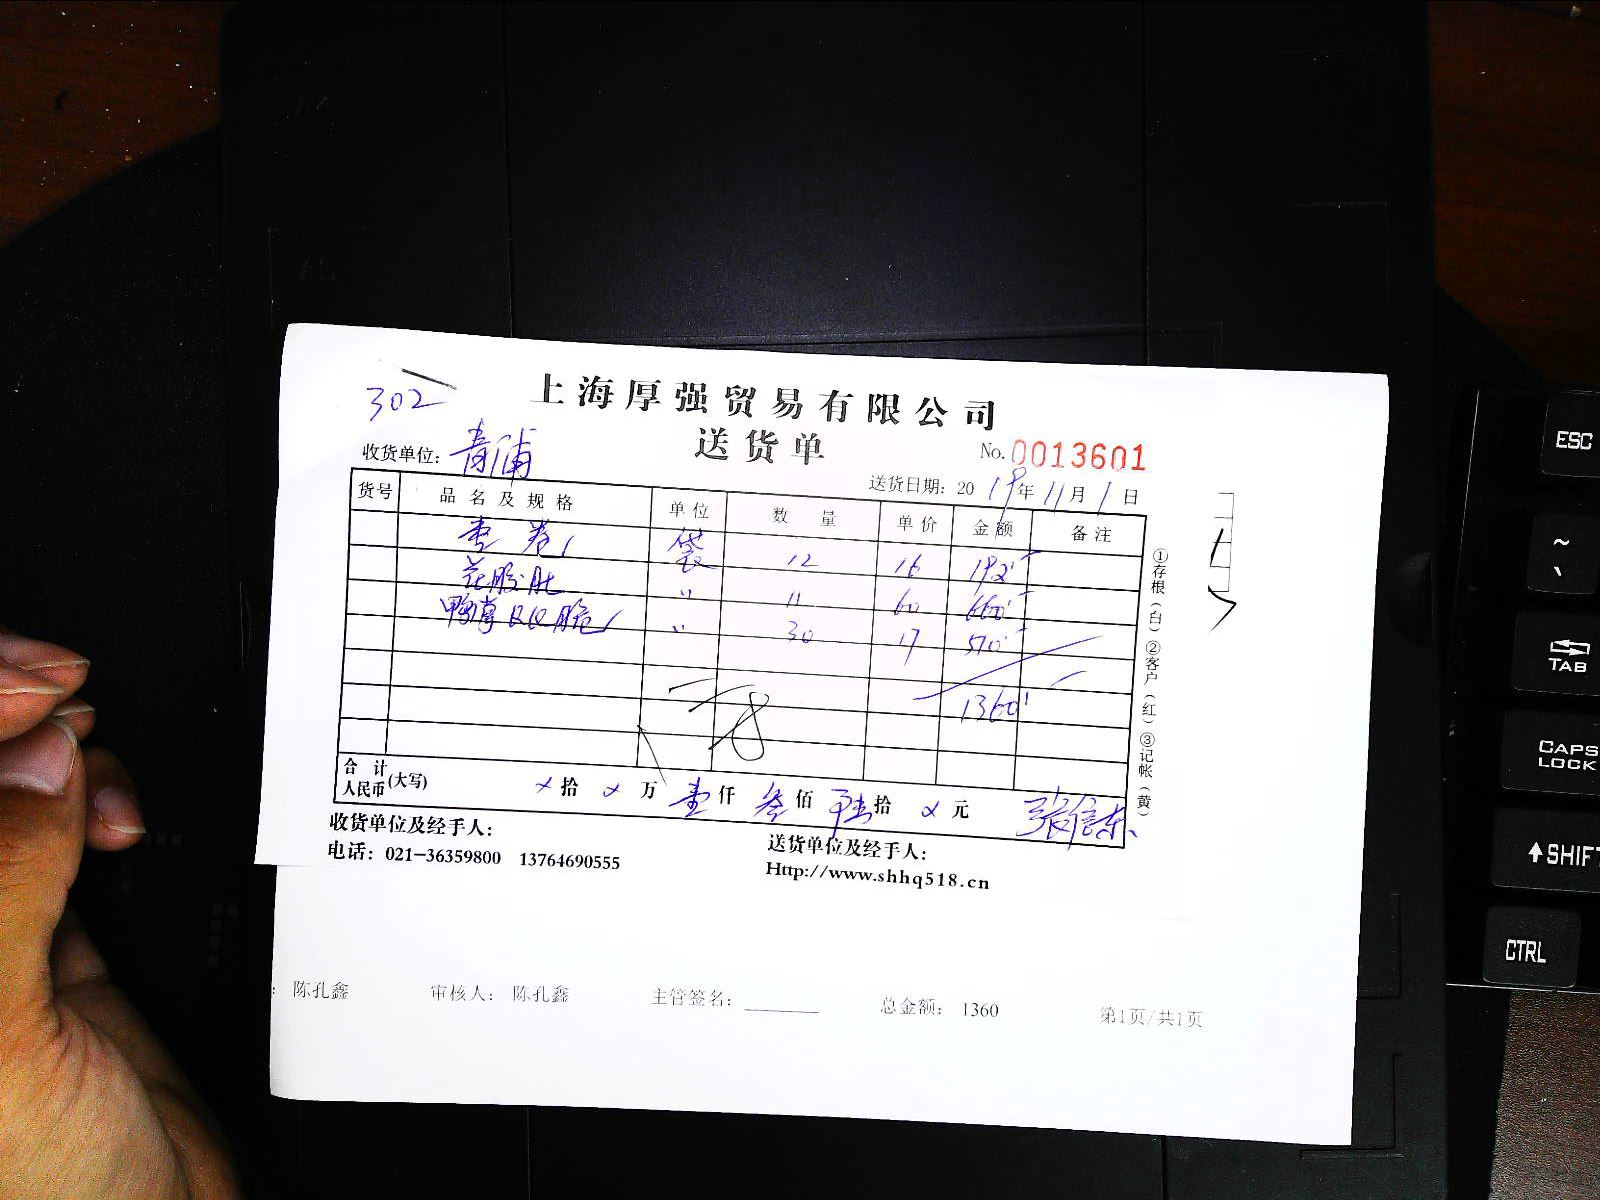 302
上海厚强贸易有限公司
送货单
收货单位: 青浦
No. 0013601
送货日期: 2019年11月1日
货号 品名及规格 单位 数量 单价 金额 备注
袋 12 16 192
花胶肚 〃 11 60 660
〃 30 17 510
1360
合计人民币(大写) 拾 万 壹仟 叁佰 陆拾 元 张信东
收货单位及经手人:
送货单位及经手人:
电话: 021-36359800 13764690555
Http://www.shhq518.cn
①存根(白)②客户(红)③记帐(黄)
: 陈孔鑫 审核人: 陈孔鑫 主管签名: 总金额: 1360 第1页/共1页
ESC
~
`
TAB
CAPS LOCK
SHIFT
CTRL